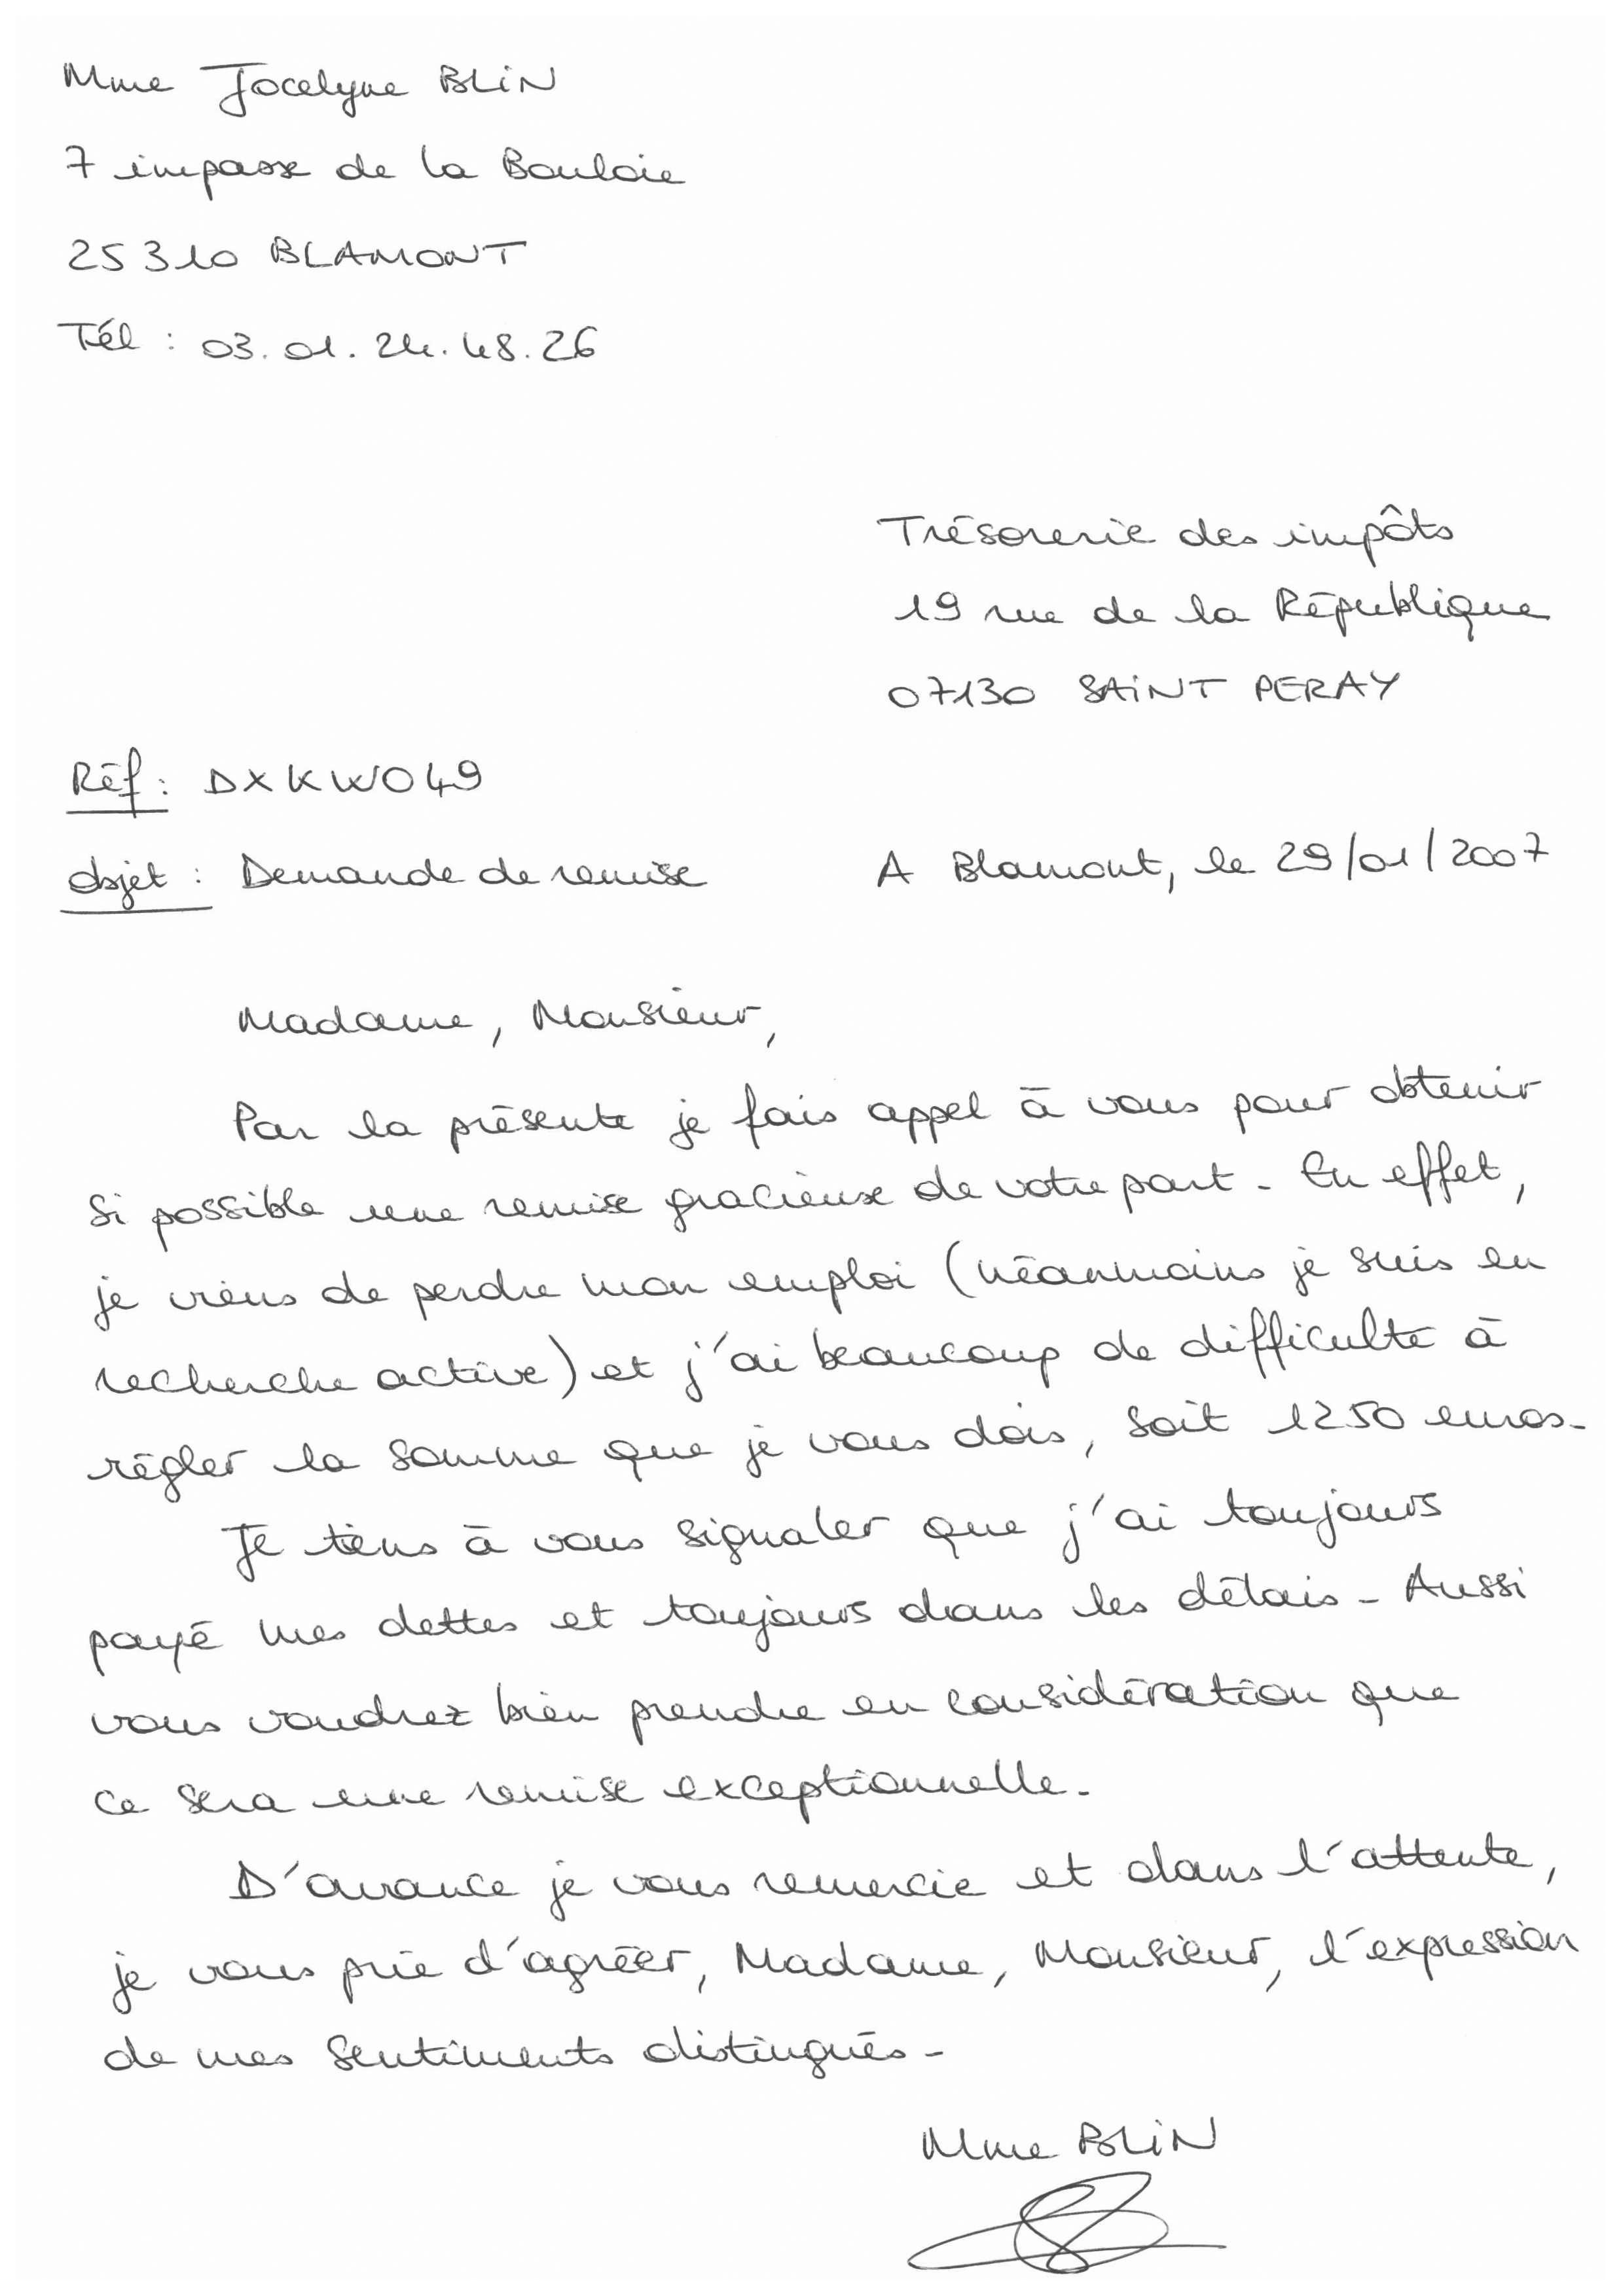 Mme Jocelyne BLIN
7 impasse de la Bouloie
25310 BLAMONT
Tél : 03.01.24.48.26
Trésorerie des impôts
19 rue de la République
07130 SAINT PERAY
Réf : DXKW049
Objet : Demande de remise
A Blamont, le 29/01/2007
Madame, Monsieur,
Par la présente je fais appel à vous pour obtenir
si possible une remise gracieuse de votre part. En effet,
je viens de perdre mon emploi (néanmoins je suis en
recherche active) et j'ai beaucoup de difficulté à
régler la somme que je vous dois, soit 1250 euros.
Je tiens à vous signaler que j'ai toujours
payé mes dettes et toujours dans les délais. Aussi
vous voudrez bien prendre en considération que
ce sera une remise exceptionnelle.
D'avance je vous remercie et dans l'attente,
je vous prie d'agréer, Madame, Monsieur, l'expression
de mes sentiments distingués.
Mme BLIN